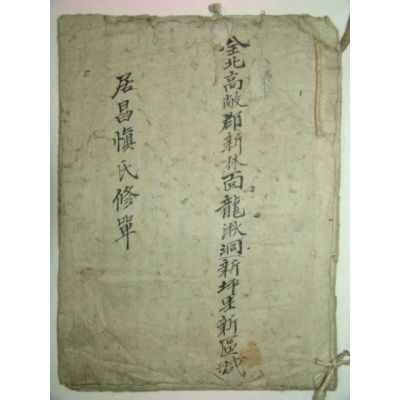 全北高敞郡新林面龍湫洞新坪里新區域
居昌愼氏修單